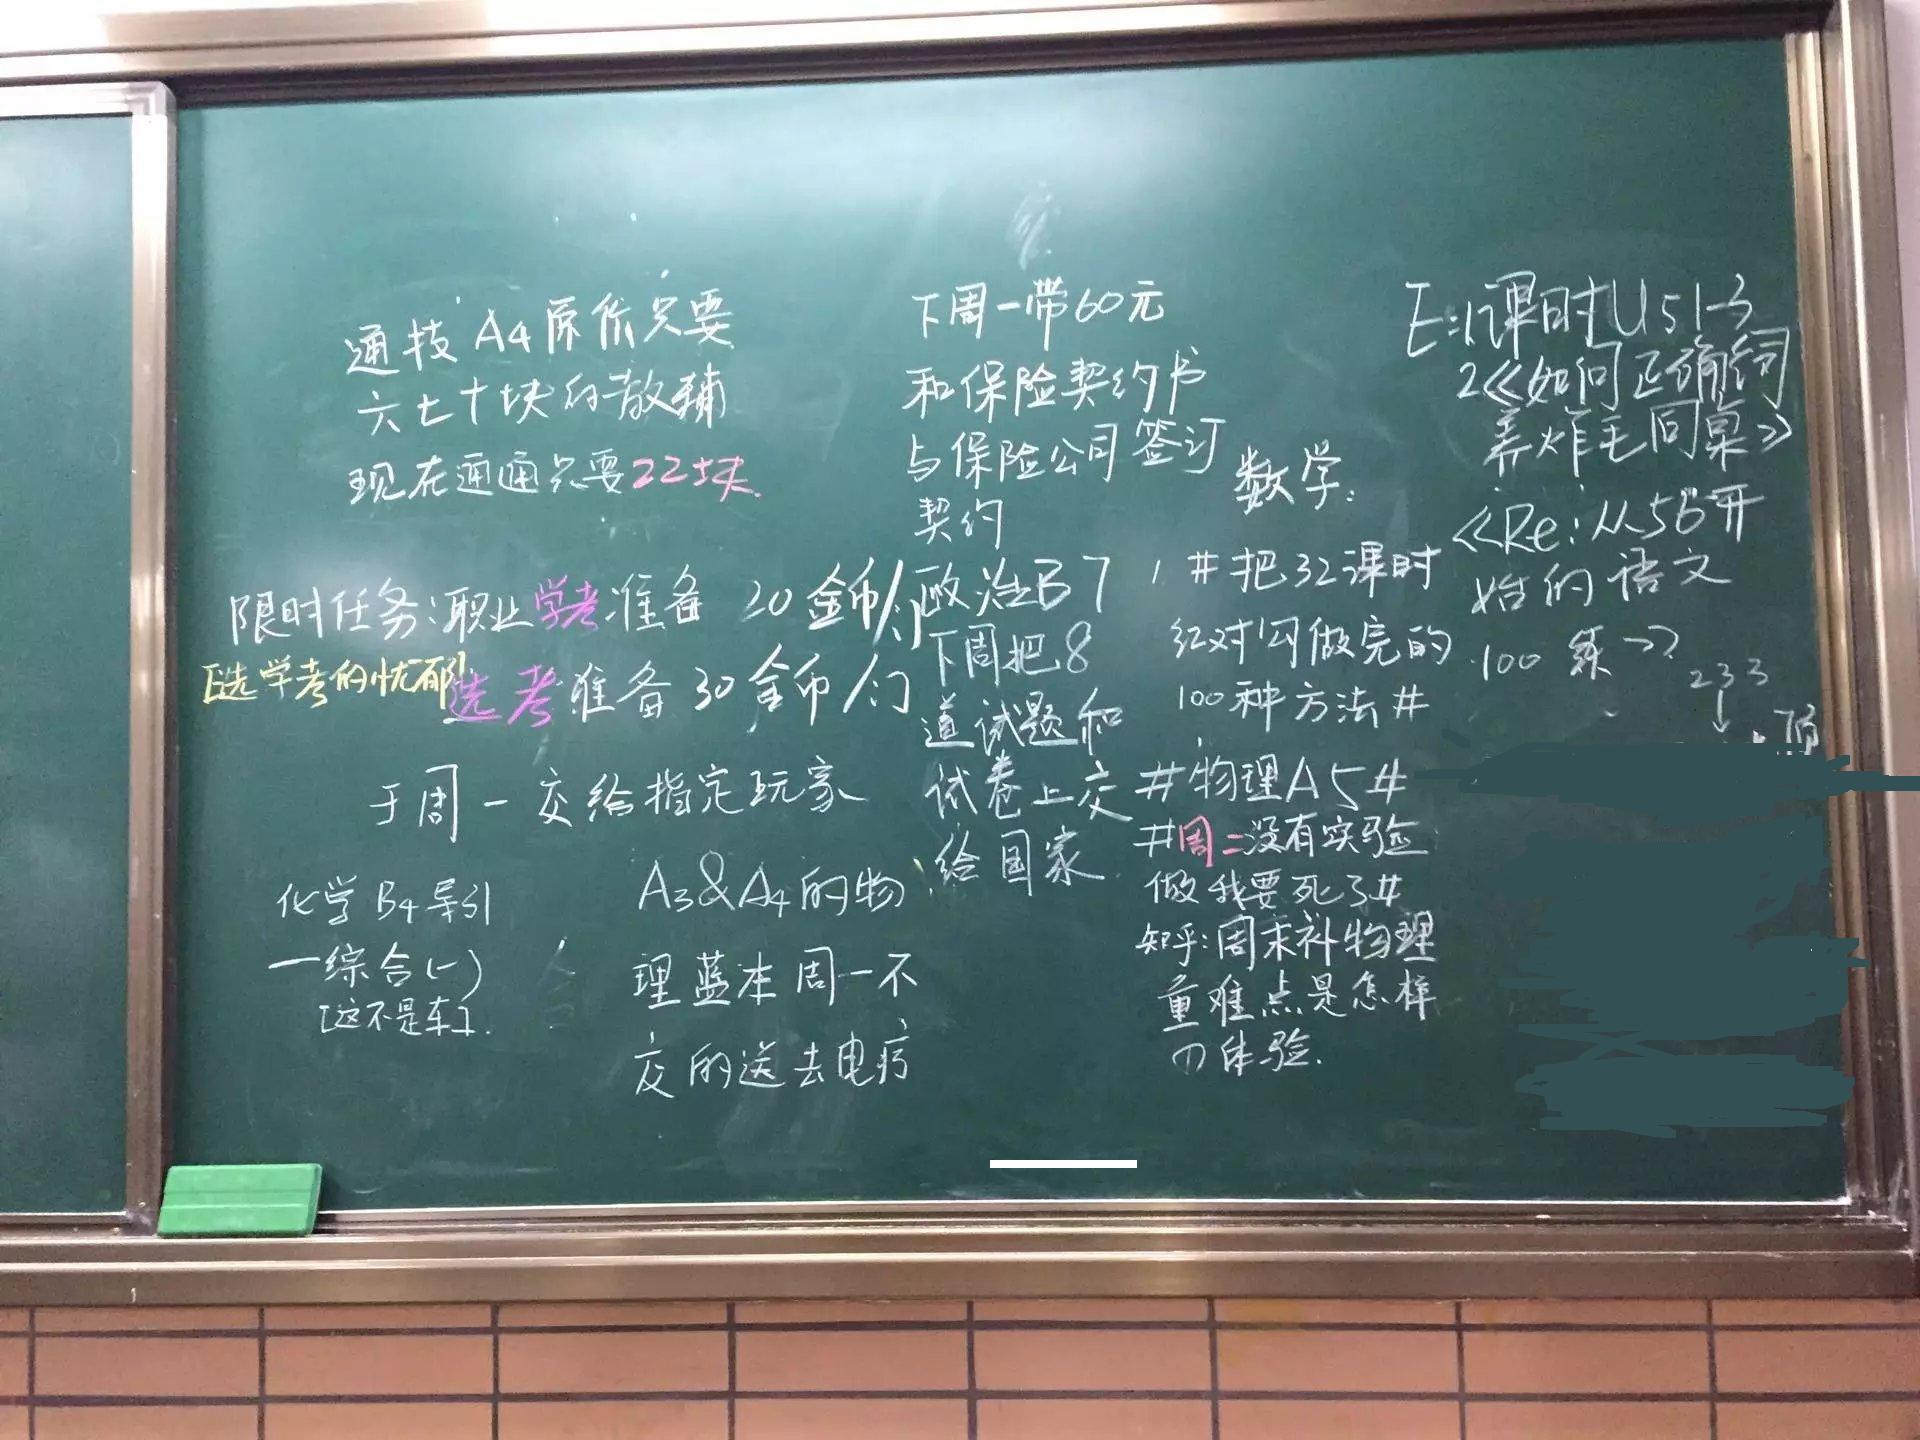 通技 A4原价只要
六七十块的教辅
现在通通只要22块.
限时任务:职业学考准备 20金币/门
[选学考的忧郁]选考准备30金币/门
于周一交给指定玩家
化学 B4导引
一综合(一)
[这不是车].
A3&A4的物
理蓝本周一不
交的送去电疗
下周一带60元
和保险契约书
与保险公司签订
契约
政治B7
下周把8
道试题和
试卷上交
给国家
数学:
1 #把32课时
红对勾做完的
100种方法#
#物理A5#
#周二没有实验
做我要死了#
知乎:周末补物理
重难点是怎样
の体验.
E:1课时U5 1-3
2《如何正确饲
养炸毛同桌》
《Re:从5B开
始的语文
100 练》
233
↓